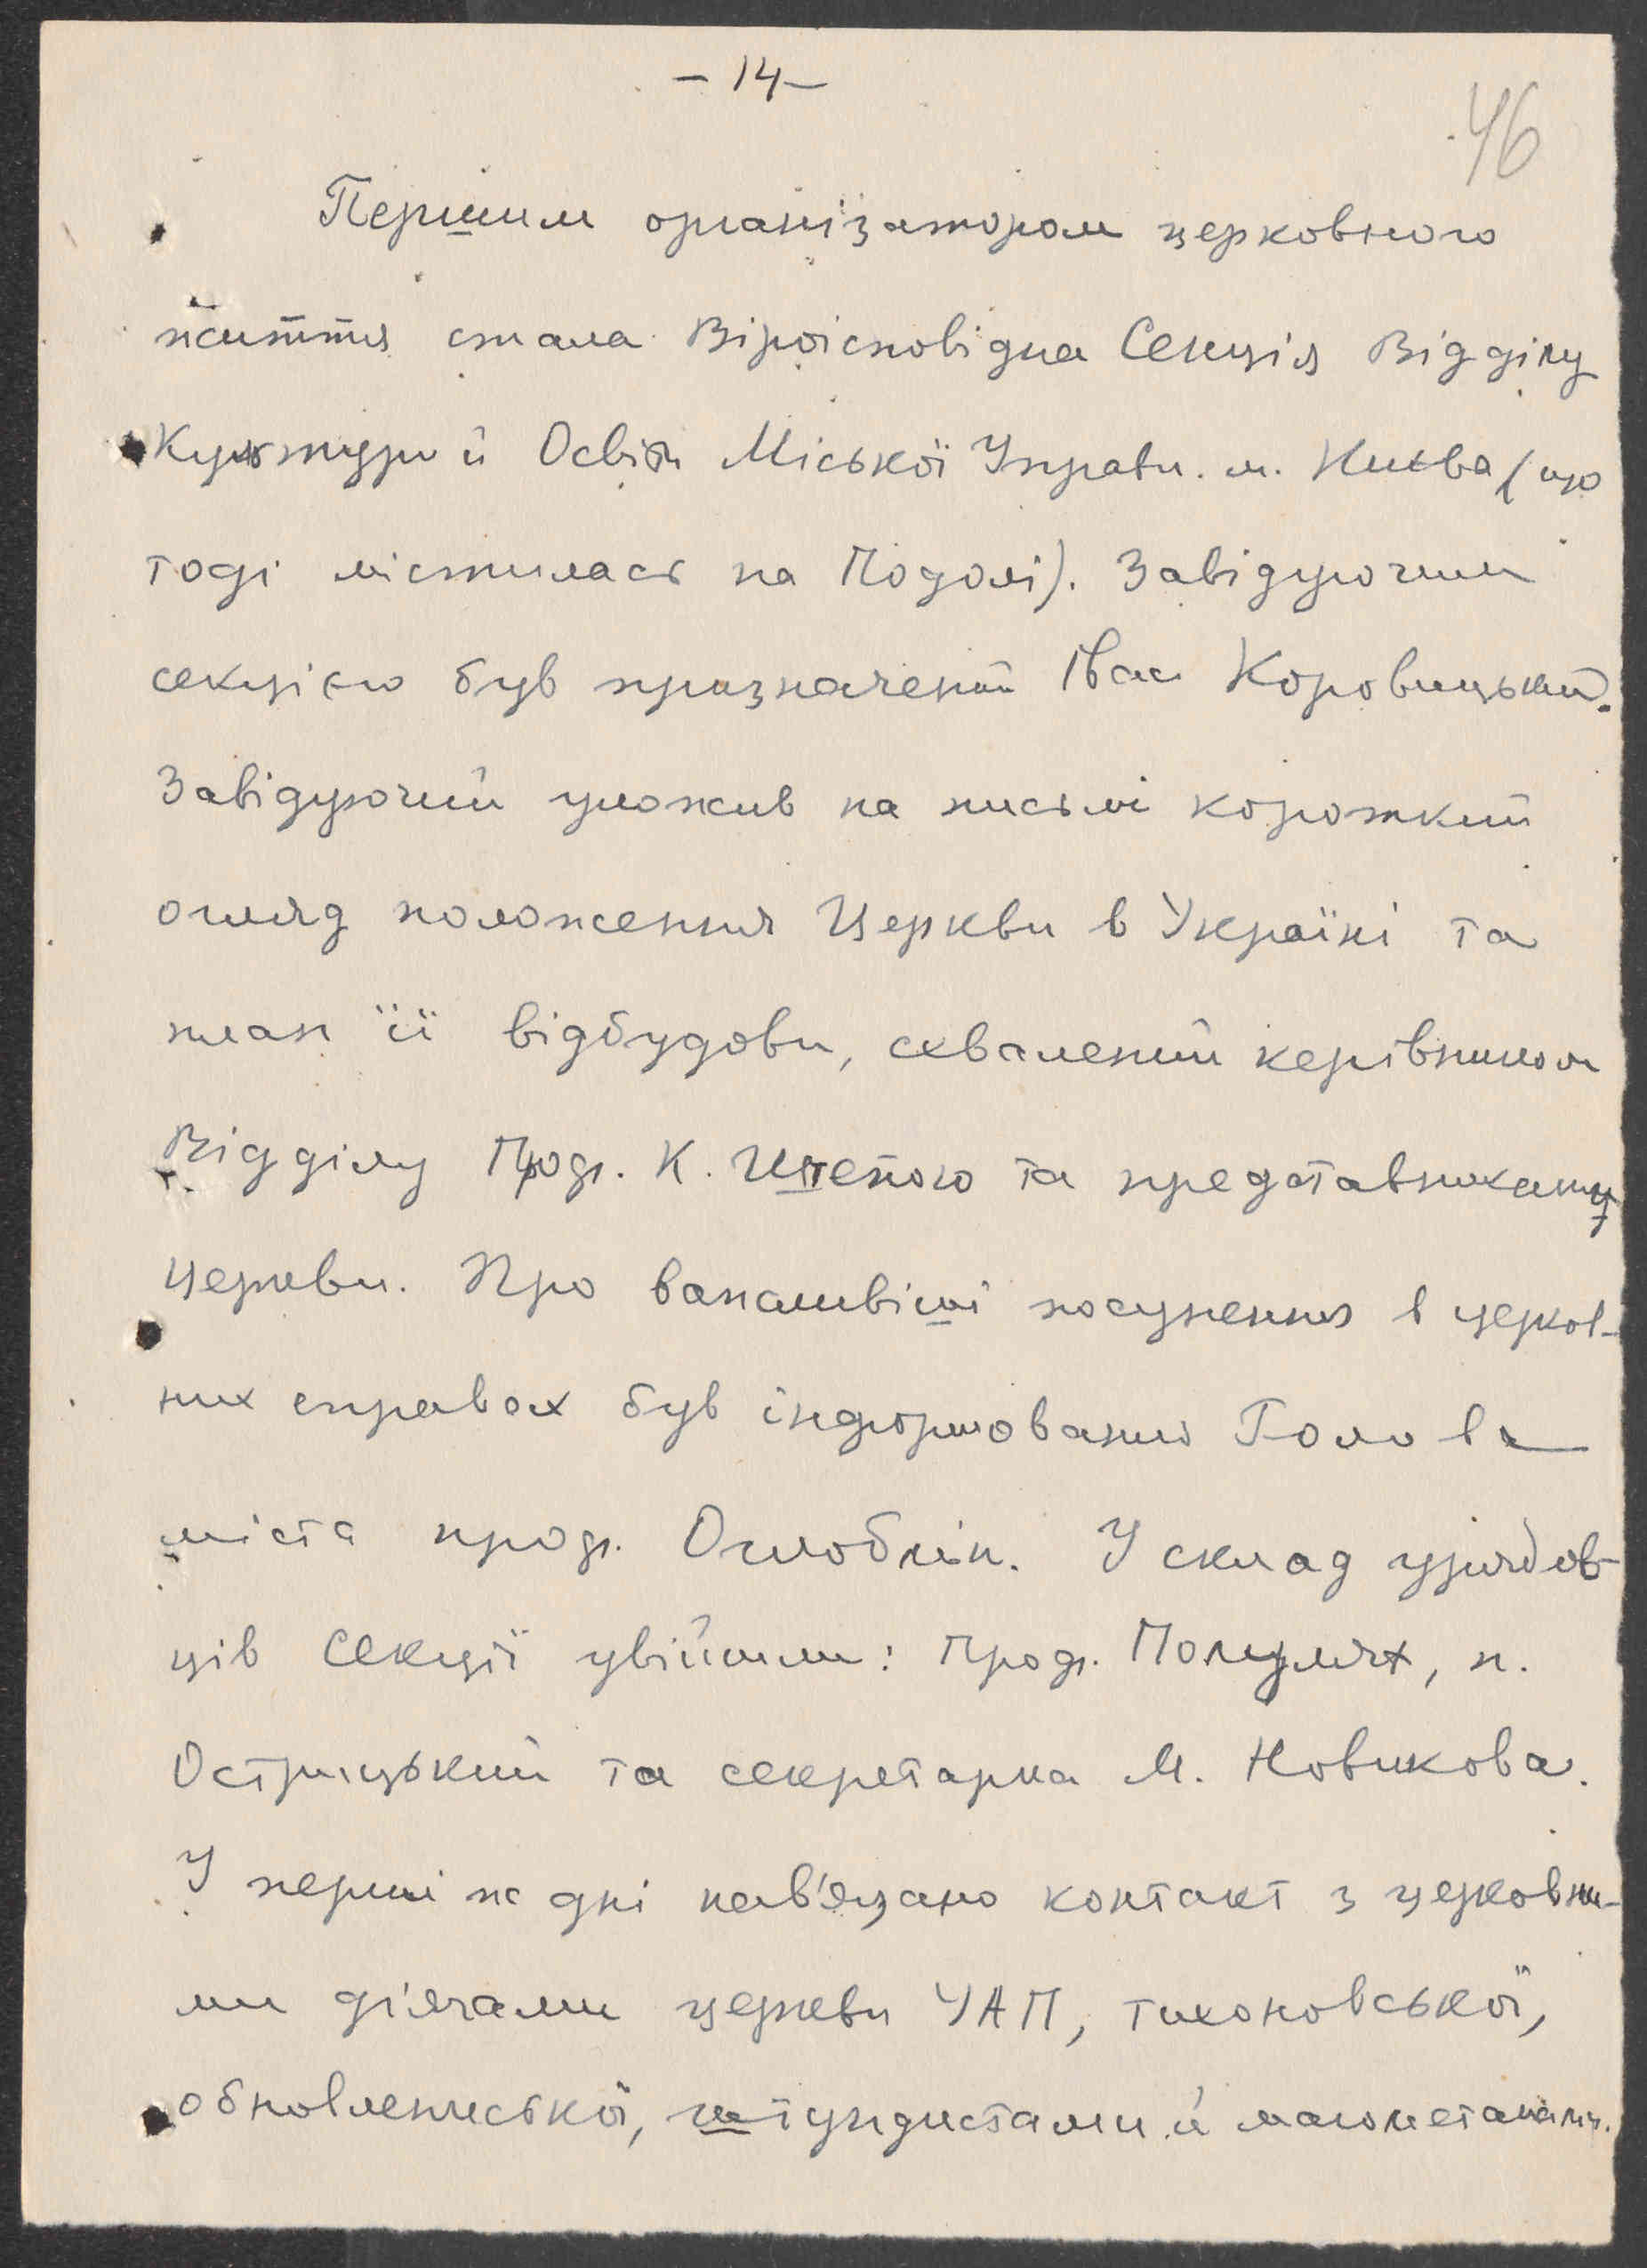 - 14 -
46
Першим організатором церковного
життя стала Віроісповідна Секція Відділу
Культури й Освіти Міської Управи м. Києва (що
тоді містилась на Подолі). Завідуючим
секцією був призначений Іван Коровицький.
Завідуючий уложив на письмі короткий
огляд положення Церкви в Україні та
план її відбудови, схвалений керівником
Відділу Проф. К. Штепою та представниками
церкви. Про важливіші посунення в церков-
них справах був інформований Голова
міста проф. Оглоблін. У склад урядов-
ців Секції увійшли: проф. Полулях, п.
Острицький та секретарка М. Новикова.
У перші ж дні нав'язано контакт з церковни-
ми діячами церкви УАП, тихоновської,
обновленчеської, штундистами й магометанами.